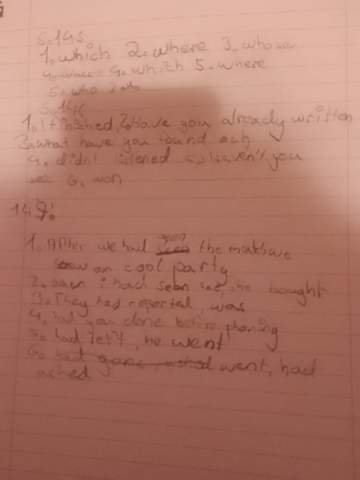 S. 145.
1. which 2. where 3. whose
4. which 5. where
6. who
S. 146
1. I finished, 2. Have you already written
3. what have you found
4. didn't 5. haven't you
6. won
147:
1. After we had seen the
saw an cool party
2. i had seen he bought
3. They had reported, was
4. had you done before phoning
5. had left, he went
6. had gone went, had
ached